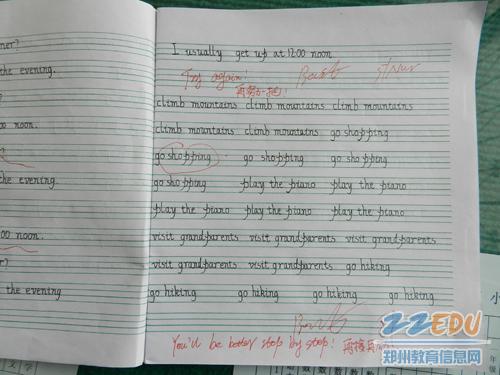 ner?
the evening.
?
00 noon.
?
the evening.
00 noon.
r?
the evening
I usually get up at 12:00 noon.
Try again!
再努力一把!
climb mountains climb mountains climb mountains
climb mountains climb mountains go shopping
go shopping go shopping go shopping
go shopping play the piano play the piano
play the piano play the piano play the piano
visit grandparents visit grandparents visit grandparents
visit grandparents visit grandparents go hiking
go hiking go hiking go hiking go hiking
You'll be better step by step!
小
22EDU
郑州教育信息网